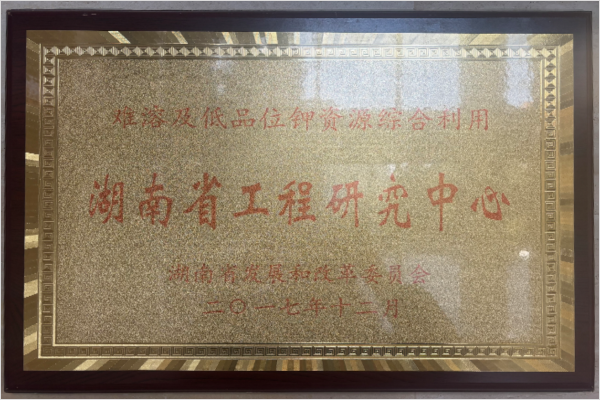 难溶及低品位钾资源综合利用
湖南省工程研究中心
湖南省发展和改革委员会
二〇一七年十二月